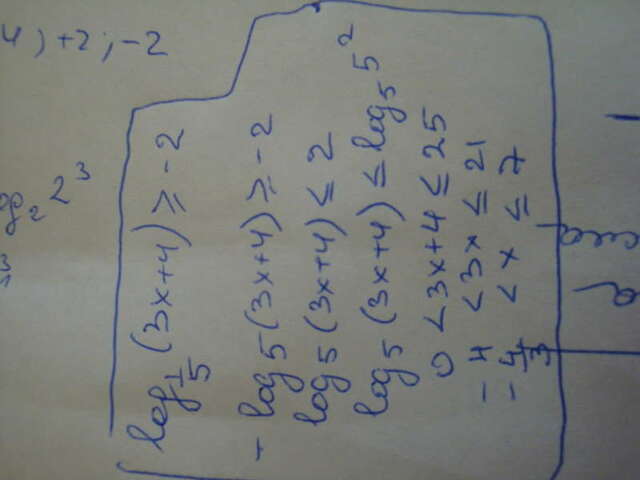 4) +2; -2
log₂ 2³
log_{1/5} (3x+4) ≥ -2
- log 5 (3x+4) ≥ -2
log 5 (3x+4) ≤ 2
log₅ (3x+4) ≤ log₅ 5²
0 < 3x+4 ≤ 25
-4 < 3x ≤ 21
-4/3 < x ≤ 7